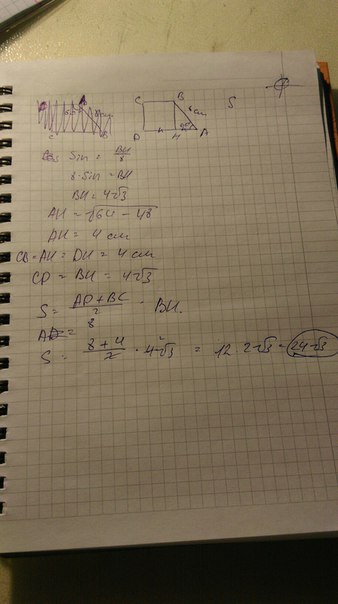 C B 8 cm S
D H A
Sin = BH/8
8 · Sin = BH
BH = 4√3
AH = √64 - 48
AH = 4 cm
CB = AH = DH = 4 cm
CD = BH = 4√3
S = AD + BC / 2 · BH.
AD = 8
S = 8 + 4 / 2 · 4√3 = 12 · 2√3 = 24√3